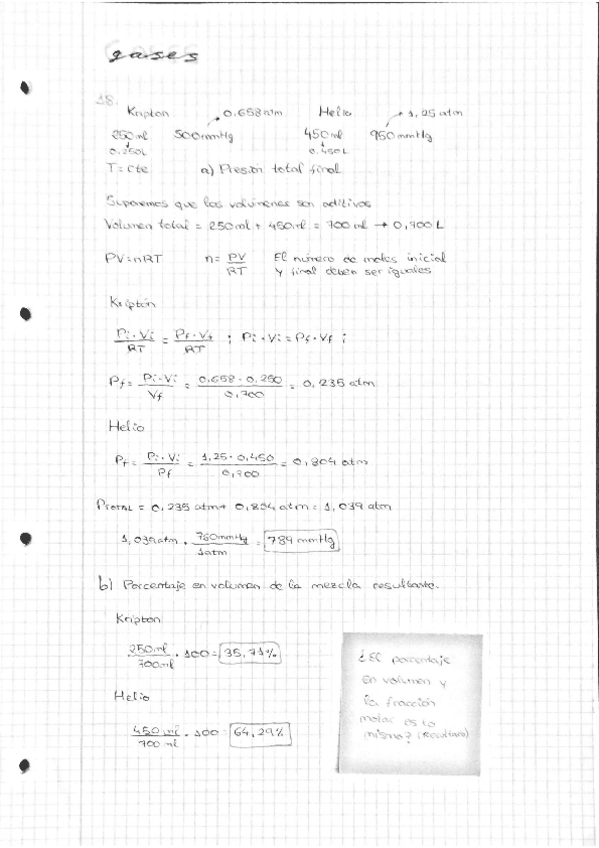 gases
18.
Kripton → 0.658 atm Helio → 1,25 atm
250 ml 500 mmHg 450 ml 950 mmHg
0.250L 0.450L
T = cte a) Presion total final
Suponemos que los volúmenes son aditivos
Volumen total = 250 ml + 450 ml = 700 ml → 0,700 L
PV = nRT n = PV/RT El número de moles inicial
y final deben ser iguales
Kriptón
Pi · Vi/RT = Pf · Vf/RT ; Pi · Vi = Pf · Vf ;
Pf = Pi · Vi/Vf = 0.658 · 0,250/0,700 = 0,235 atm
Helio
Pf = Pi · Vi/Pf = 1,25 · 0,450/0,700 = 0,804 atm
PTOTAL = 0.235 atm + 0,804 atm = 1,039 atm
1,039 atm · 760 mmHg/1 atm = 789 mmHg
b) Porcentaje en volumen de la mezcla resultante.
Kripton
250 ml/700 ml · 100 = 35,71%
Helio
450 ml/700 ml · 100 = 64,29%
¿El porcentaje
en volumen y
la fracción
molar es lo
mismo? (Resultado)